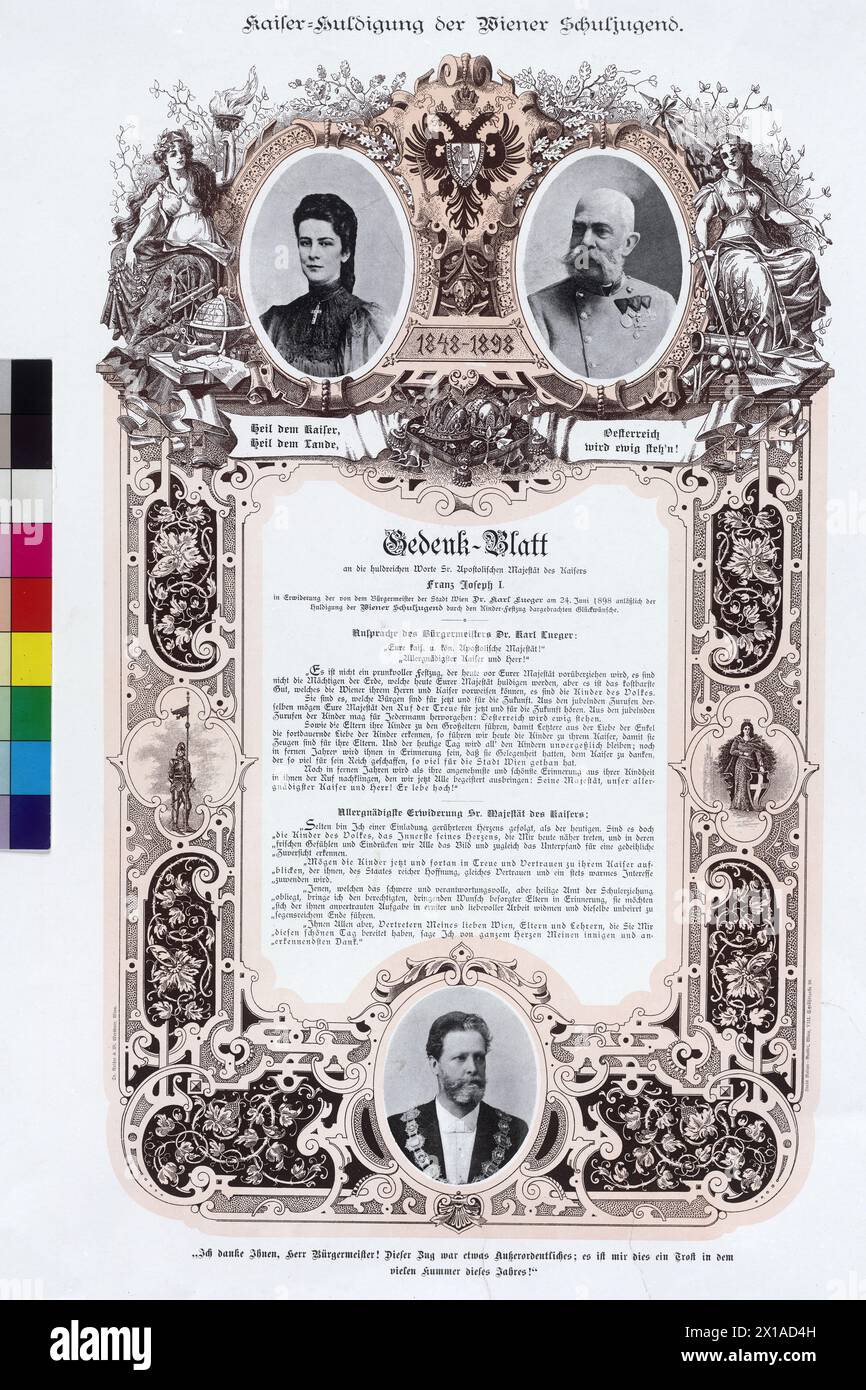 Kaiser-Huldigung der Wiener Schuljugend.
1848-1898
Heil dem Kaiser,
Heil dem Lande,
Oesterreich
wird ewig steh'n!
Gedenk-Blatt
an die huldreichen Worte Sr. Apostolischen Majestät des Kaisers
Franz Joseph I.
in Erwiderung der von dem Bürgermeister der Stadt Wien Dr. Karl Lueger am 24. Juni 1898 anläßlich der
Huldigung der Wiener Schuljugend durch den Kinder-Festzug dargebrachten Glückwünsche.
Ansprache des Bürgermeisters Dr. Karl Lueger:
„Eure kais. u. kön. Apostolische Majestät!"
„Allergnädigster Kaiser und Herr!"
„Es ist nicht ein prunkvoller Festzug, der heute vor Eurer Majestät vorüberziehen wird, es sind
nicht die Mächtigen der Erde, welche heute Eurer Majestät huldigen werden, aber es ist das kostbarste
Gut, welches die Wiener ihrem Herrn und Kaiser vorweisen können, es sind die Kinder des Volkes.
Sie sind es, welche Bürgen sind für jetzt und für die Zukunft. Aus den jubelnden Zurufen der-
selben mögen Eure Majestät den Ruf der Treue für jetzt und für die Zukunft hören. Aus den jubelnden
Zurufen der Kinder mag für Jedermann hervorgehen: Oesterreich wird ewig stehen.
Sowie die Eltern ihre Kinder zu den Großeltern führen, damit Letztere aus der Liebe der Enkel
die fortdauernde Liebe der Kinder erkennen, so führen wir heute die Kinder zu ihrem Kaiser, damit sie
Zeugen sind für ihre Eltern. Und der heutige Tag wird all' den Kindern unvergeßlich bleiben; noch
in fernen Jahren wird ihnen in Erinnerung sein, daß sie Gelegenheit hatten, dem Kaiser zu danken,
der so viel für sein Reich geschaffen, so viel für die Stadt Wien gethan hat.
Noch in fernen Jahren wird als ihre angenehmste und schönste Erinnerung aus ihrer Kindheit
in ihnen der Ruf nachklingen, den wir jetzt Alle begeistert ausbringen: Seine Majestät, unser aller-
gnädigster Kaiser und Herr! Er lebe hoch!"
Allergnädigste Erwiderung Sr. Majestät des Kaisers:
„Selten bin Ich einer Einladung gerührteren Herzens gefolgt, als der heutigen. Sind es doch
„die Kinder des Volkes, das Innerste seines Herzens, die Mir heute näher treten, und in deren
„frischen Gefühlen und Eindrücken wir Alle das Bild und zugleich das Unterpfand für eine gedeihliche
„Zuversicht erkennen.
„Mögen die Kinder jetzt und fortan in Treue und Vertrauen zu ihrem Kaiser auf-
„blicken, der ihnen, des Staates reicher Hoffnung, gleiches Vertrauen und ein stets warmes Interesse
„zuwenden wird.
„Jenen, welchen das schwere und verantwortungsvolle, aber heilige Amt der Schulerziehung
„obliegt, bringe ich den berechtigten, dringenden Wunsch besorgter Eltern in Erinnerung, sie möchten
„sich der ihnen anvertrauten Aufgabe in ernster und liebevoller Arbeit widmen und dieselbe unbeirrt zu
„segensreichem Ende führen.
„Ihnen Allen aber, Vertretern Meines lieben Wien, Eltern und Lehrern, die Sie Mir
„diesen schönen Tag bereitet haben, sage Ich von ganzem Herzen Meinen innigen und an-
„erkennendsten Dank."
„Ich danke Ihnen, Herr Bürgermeister! Dieser Zug war etwas Außerordentliches; es ist mir dies ein Trost in dem
vielen Kummer dieses Jahres!"
alamy
Image ID: 2X1AD4H
www.alamy.com